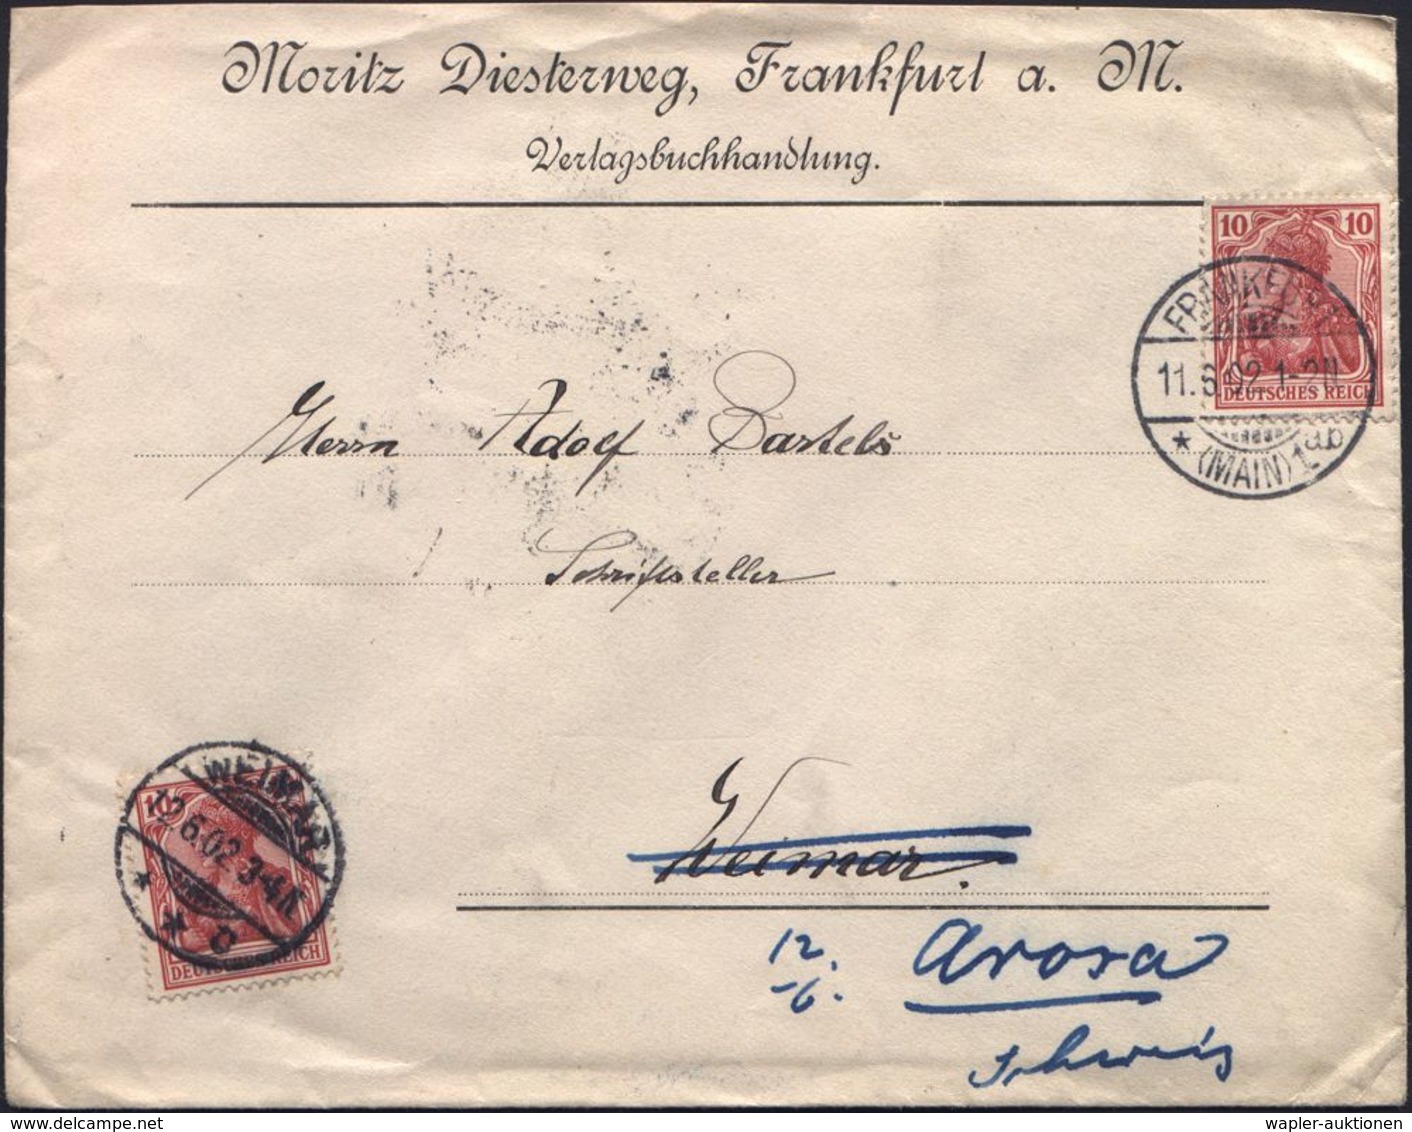 Moritz Diesterweg, Frankfurt a. M.
Verlagsbuchhandlung.
10 10
DEUTSCHES REICH
FRANKFURT
11.6.02.1-2N.
* (MAIN) 1 ab
Herrn Adolf Bartels
Schriftsteller
Weimar.
12.
6.
Arosa
Schweiz
WEIMAR
12.6.02.3-4N.
* *
10
DEUTSCHES REICH
wapler-auktionen